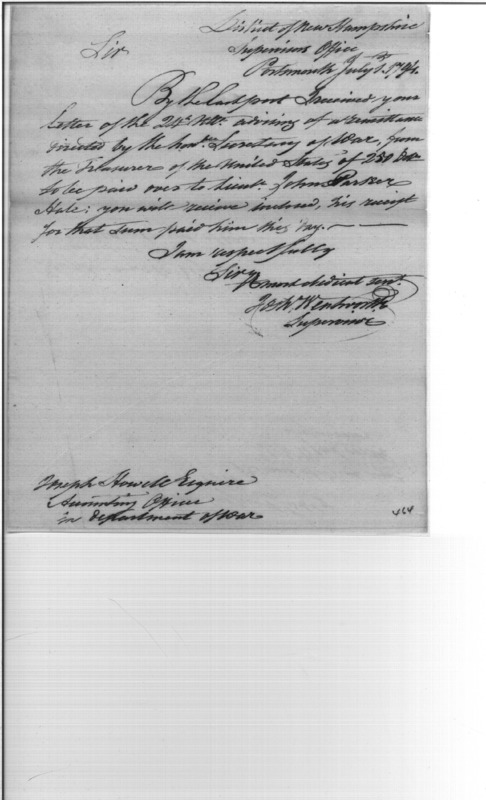 District of New Hampshire
Supervisors Office
Portsmouth July 1. 1794.
Sir
By the last post I received your
Letter of the 24th Ulto. advising of a remittance
directed by the honble. Secretary of War, from
the Treasurer of the United States of 280
to be paid over to Lieut. John Parker
Hale: you will receive inclosed, his receipt
for that Sum paid him this day.
I am respectfully
Sir
Your most obedient Servt.
Jos. Wentworth
Supervisor
Joseph Howell Esquire
Accounting Office
in department of War
464